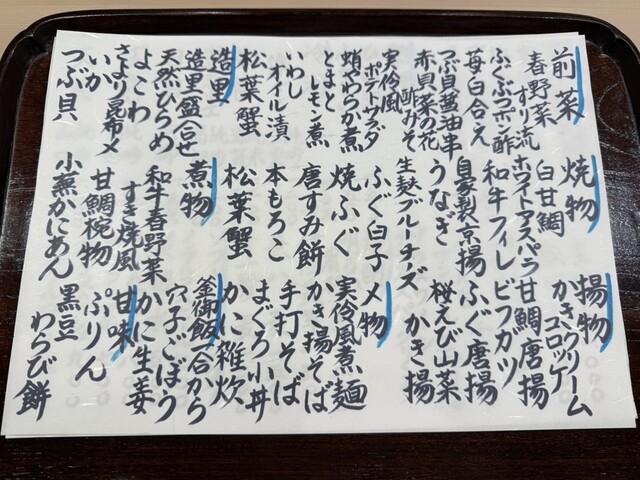 前菜
春野菜すり流
ふぐぶつポン酢
苺白合え
つぶ貝醤油串
赤貝菜の花酢みそ
実伶風ポテトサラダ
蛸やわらか煮
とまとレモン煮
いわしオイル漬
松葉蟹
造里
造里盛合せ
天然ひらめ
よこわ
さより昆布〆
いか
つぶ貝
焼物
白甘鯛
ホワイトアスパラ
和牛フィレビフカツ
自家製京揚
うなぎ
生麩ブルーチーズ
ふぐ白子
焼ふぐ
唐すみ餅
本もろこ
松葉蟹
煮物
和牛春野菜すき焼風
甘鯛椀物
小蕪かにあん
揚物
かきクリームコロッケ
甘鯛唐揚
ふぐ唐揚
桜えび山菜かき揚
〆物
実伶風煮麺
かき揚そば
手打そば
まぐろ小丼
かに雑炊
釜御飯一合から
穴子ごぼう
かに生姜
甘味
ぷりん
黒豆わらび餅